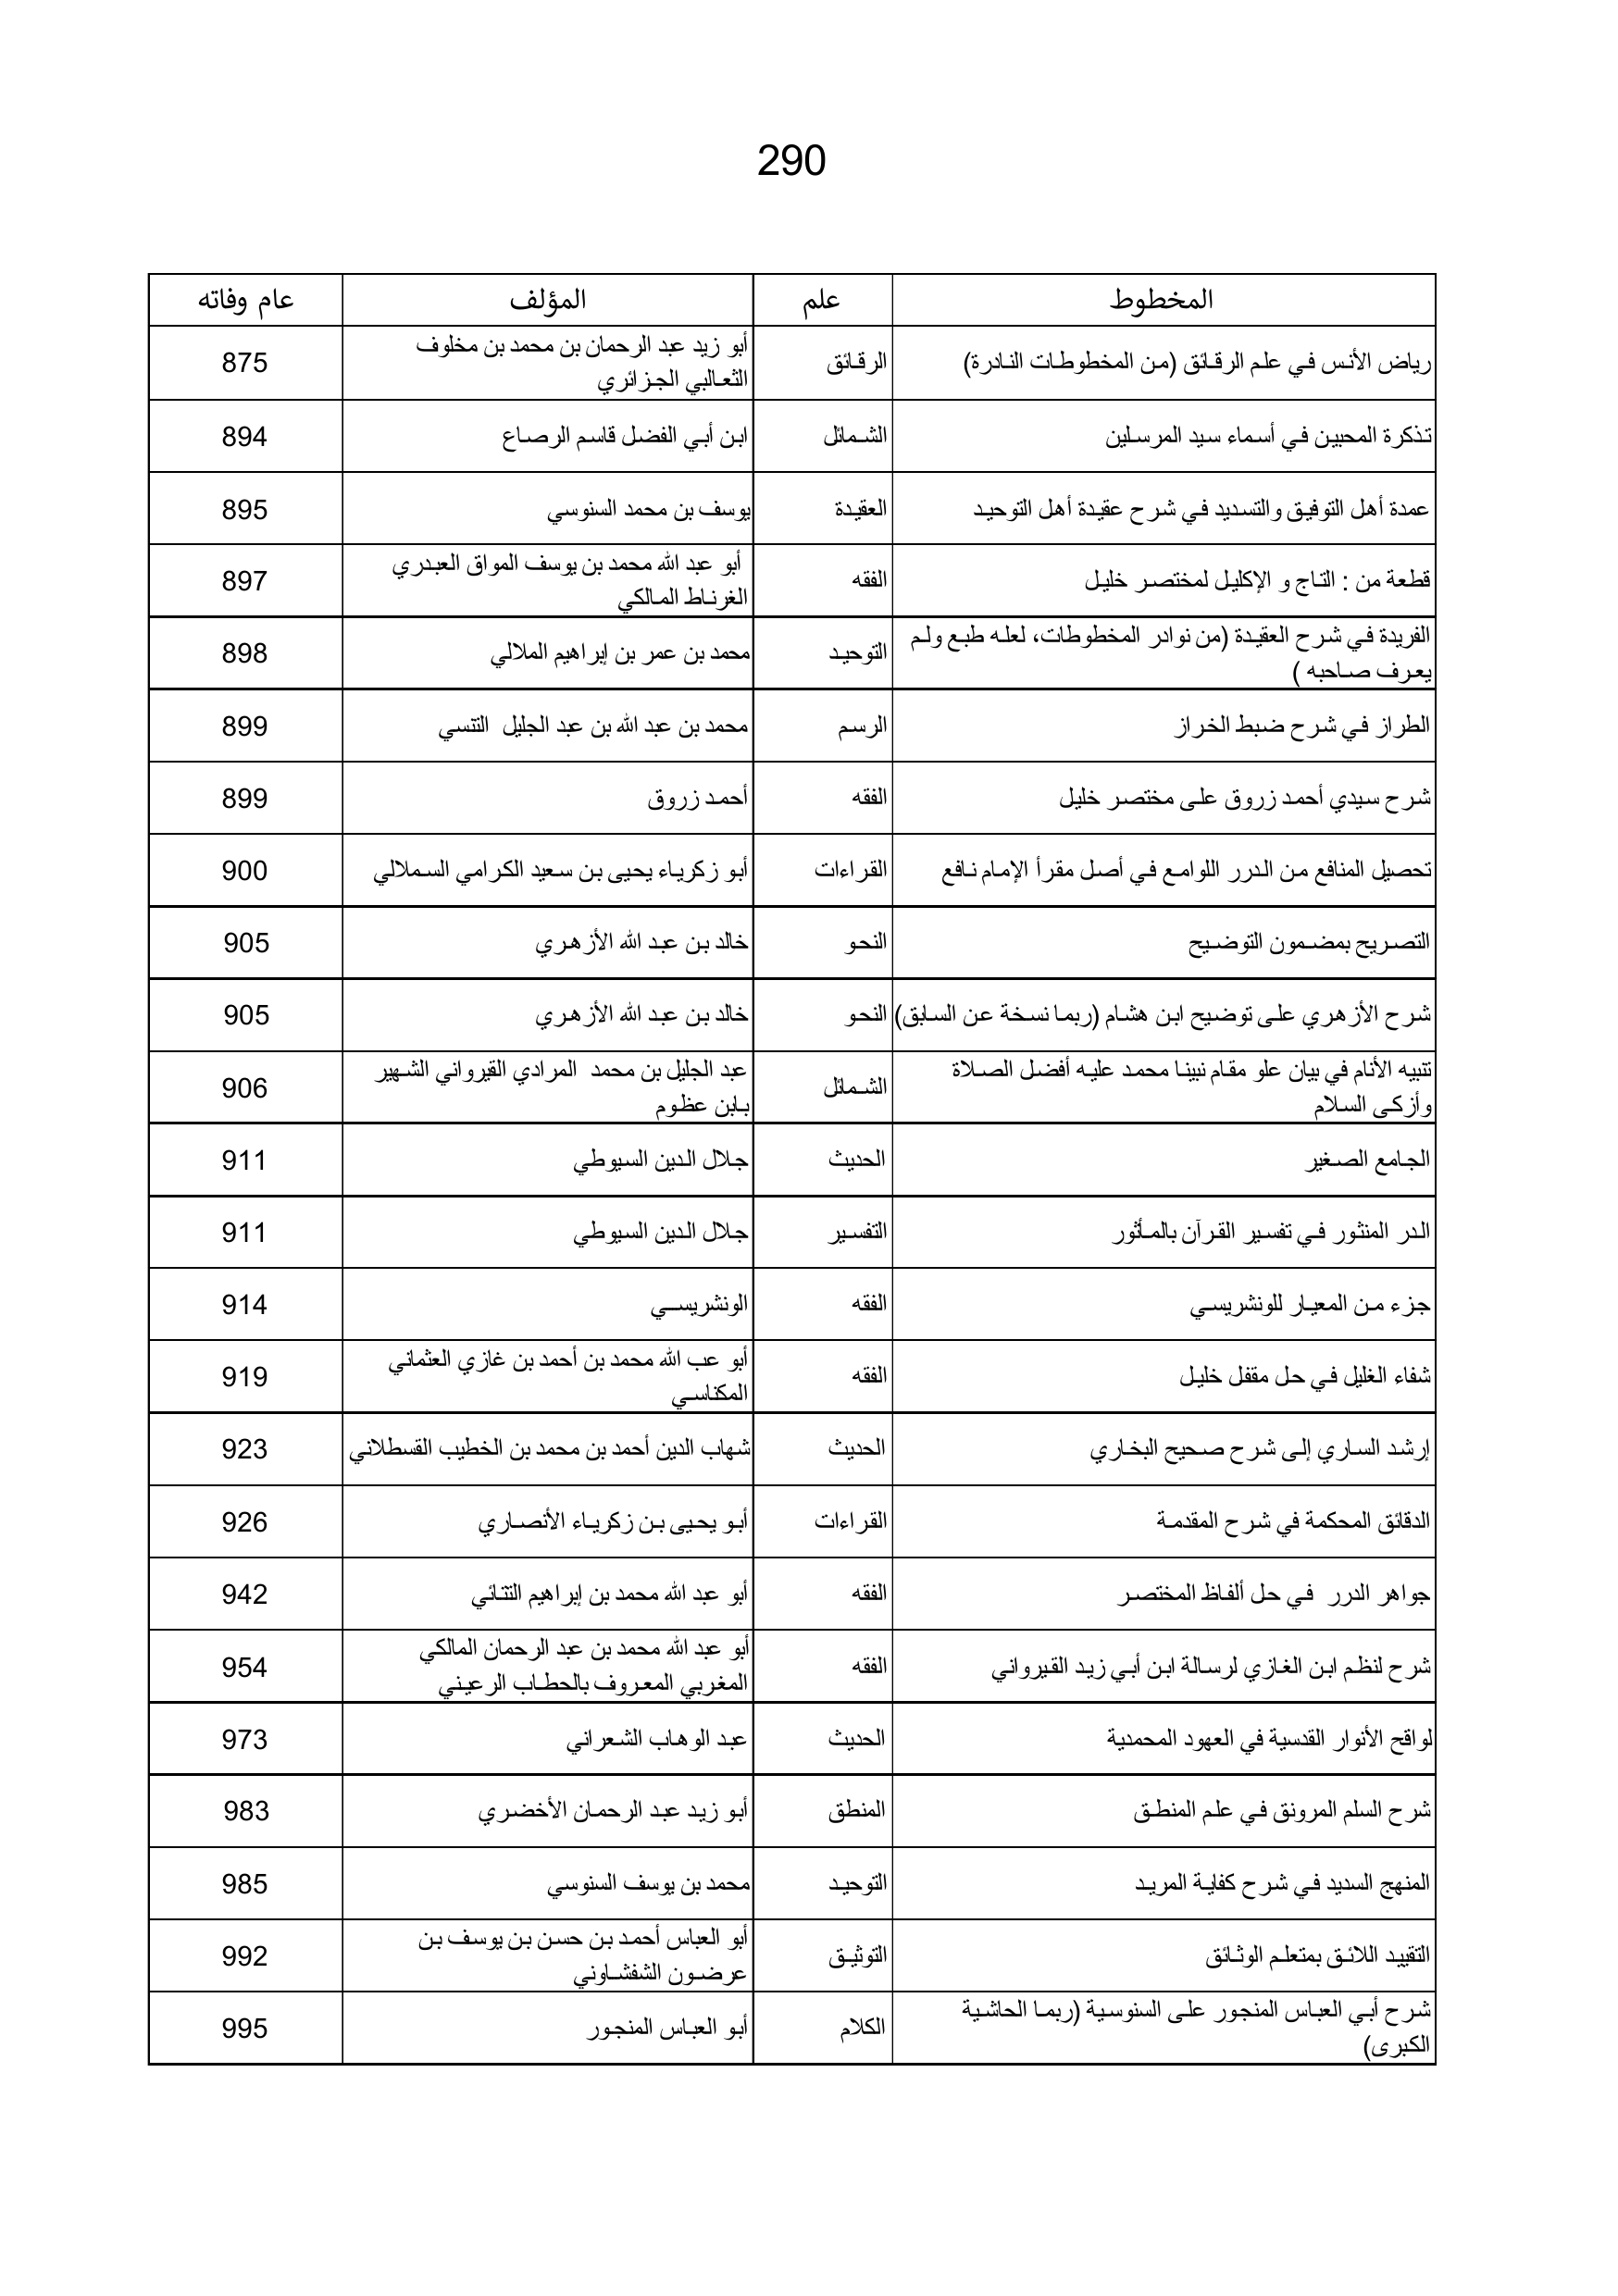 290
المخطوط علم المؤلف عام وفاته
رياض الأنس في علم الرقائق (من المخطوطات النادرة) الرقائق أبو زيد عبد الرحمان بن محمد بن مخلوف
الثعالبي الجزائري 875
تذكرة المحبين في أسماء سيد المرسلين الشمائل ابن أبي الفضل قاسم الرصاع 894
عمدة أهل التوفيق والتسديد في شرح عقيدة أهل التوحيد العقيدة يوسف بن محمد السنوسي 895
قطعة من : التاج و الإكليل لمختصر خليل الفقه أبو عبد الله محمد بن يوسف المواق العبدري
الغرناط المالكي 897
الفريدة في شرح العقيدة (من نوادر المخطوطات، لعله طبع ولم
يعرف صاحبه ) التوحيد محمد بن عمر بن إبراهيم الملالي 898
الطراز في شرح ضبط الخراز الرسم محمد بن عبد الله بن عبد الجليل التنسي 899
شرح سيدي أحمد زروق على مختصر خليل الفقه أحمد زروق 899
تحصيل المنافع من الدرر اللوامع في أصل مقرأ الإمام نافع القراءات أبو زكرياء يحيى بن سعيد الكرامي السملالي 900
التصريح بمضمون التوضيح النحو خالد بن عبد الله الأزهري 905
شرح الأزهري على توضيح ابن هشام (ربما نسخة عن السابق) النحو خالد بن عبد الله الأزهري 905
تنبيه الأنام في بيان علو مقام نبينا محمد عليه أفضل الصلاة
وأزكى السلام الشمائل عبد الجليل بن محمد المرادي القيرواني الشهير
بابن عظوم 906
الجامع الصغير الحديث جلال الدين السيوطي 911
الدر المنثور في تفسير القرآن بالمأثور التفسير جلال الدين السيوطي 911
جزء من المعيار للونشريسي الفقه الونشريسي 914
شفاء الغليل في حل مقفل خليل الفقه أبو عب الله محمد بن أحمد بن غازي العثماني
المكناسي 919
إرشد الساري إلى شرح صحيح البخاري الحديث شهاب الدين أحمد بن محمد بن الخطيب القسطلاني 923
الدقائق المحكمة في شرح المقدمة القراءات أبو يحيى بن زكرياء الأنصاري 926
جواهر الدرر في حل ألفاظ المختصر الفقه أبو عبد الله محمد بن إبراهيم التتائي 942
شرح لنظم ابن الغازي لرسالة ابن أبي زيد القيرواني الفقه أبو عبد الله محمد بن عبد الرحمان المالكي
المغربي المعروف بالحطاب الرعيني 954
لواقح الأنوار القدسية في العهود المحمدية الحديث عبد الوهاب الشعراني 973
شرح السلم المرونق في علم المنطق المنطق أبو زيد عبد الرحمان الأخضري 983
المنهج السديد في شرح كفاية المريد التوحيد محمد بن يوسف السنوسي 985
التقييد اللائق بمتعلم الوثائق التوثيق أبو العباس أحمد بن حسن بن يوسف بن
عرضون الشفشاوني 992
شرح أبي العباس المنجور على السنوسية (ربما الحاشية
الكبرى) الكلام أبو العباس المنجور 995